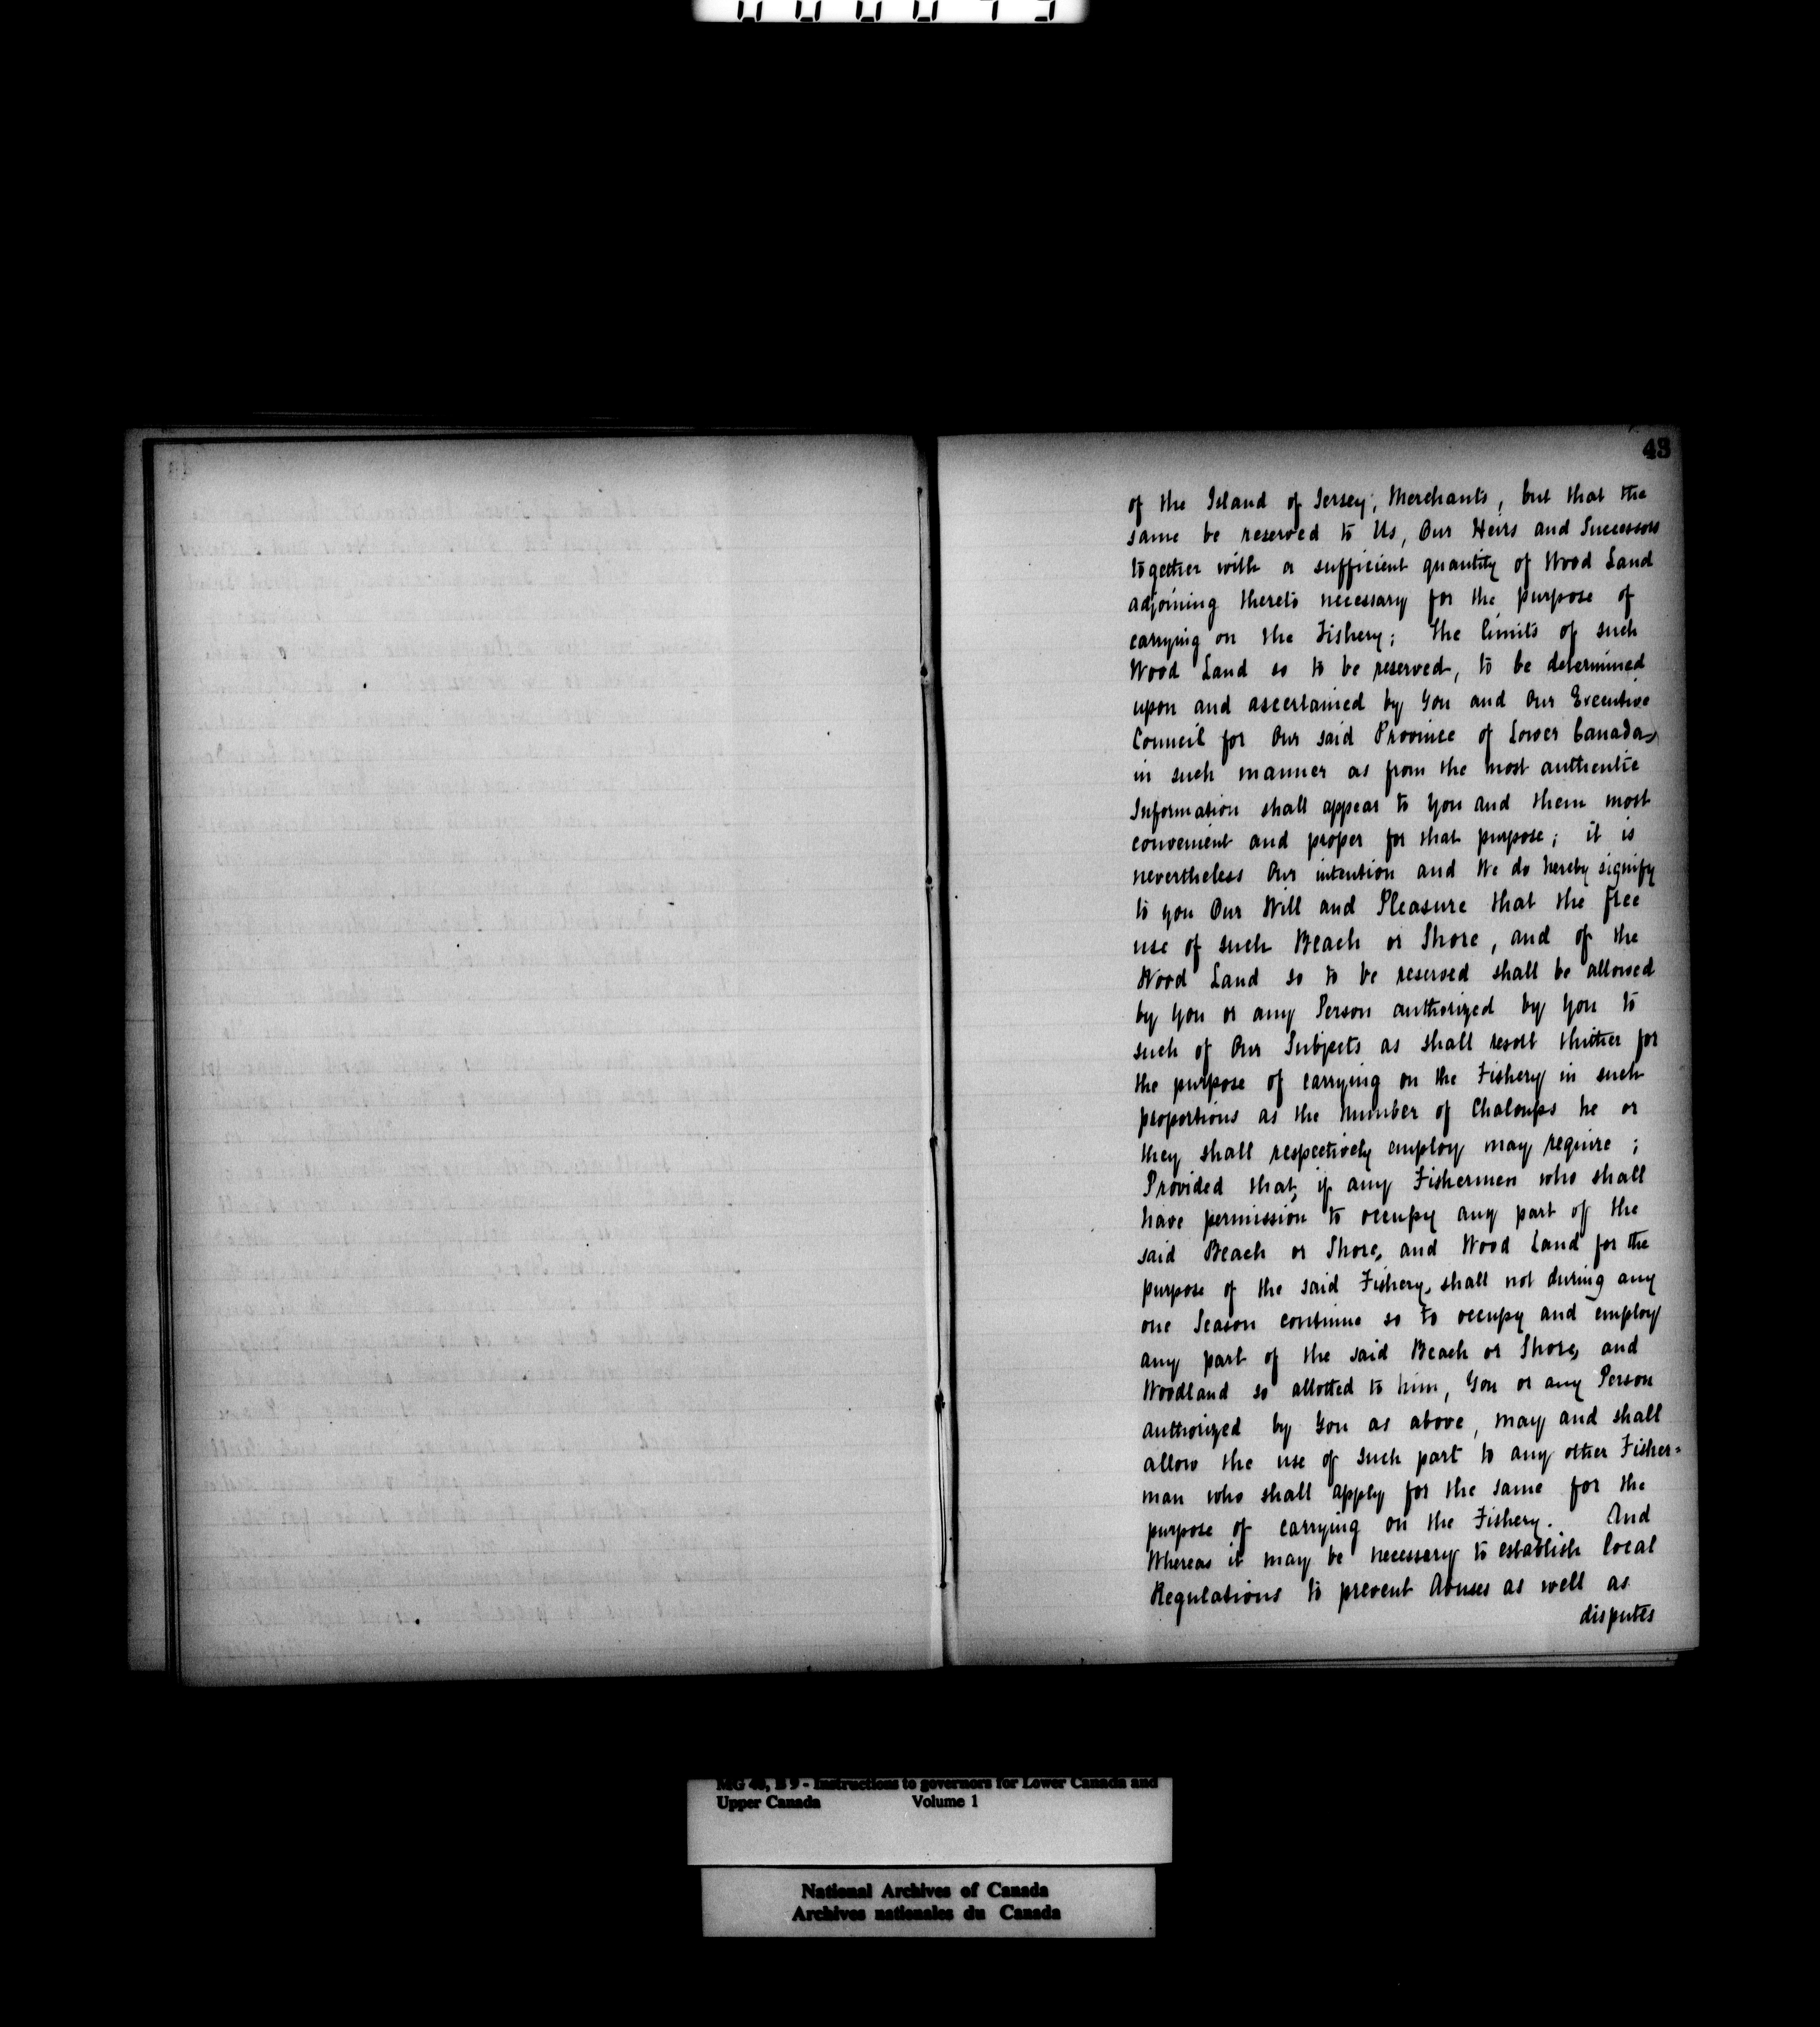 43
of the Island of Jersey, Merchants, but that the
same be reserved to Us, Our Heirs and Successors
together with a sufficient quantity of Wood Land
adjoining thereto necessary for the purpose of
carrying on the Fishery; the limits of such
Wood Land so to be reserved, to be determined
upon and ascertained by You and Our Executive
Council for Our said Province of Lower Canada,
in such manner as from the most authentic
Information shall appear to You and them most
convenient and proper for that purpose; it is
nevertheless Our intention and We do hereby signify
to you Our Will and Pleasure that the free
use of such Beach or Shore, and of the
Wood Land so to be reserved shall be allowed
by You or any Person authorized by You to
such of Our Subjects as shall resort thither for
the purpose of carrying on the Fishery in such
proportions as the Number of Chaloups he or
they shall respectively employ may require;
Provided that, if any Fishermen who shall
have permission to occupy any part of the
said Beach or Shore, and Wood Land for the
purpose of the said Fishery, shall not during any
one Season continue so to occupy and employ
any part of the said Beach or Shore, and
Woodland so allotted to him, You or any Person
authorized by You as above, may and shall
allow the use of such part to any other Fisher=
man who shall apply for the same for the
purpose of carrying on the Fishery. And
Whereas it may be necessary to establish local
Regulations to prevent Abuses as well as
disputes
MG 40, B 9 - Instructions to governors for Lower Canada and
Upper Canada Volume 1
National Archives of Canada
Archives nationales du Canada